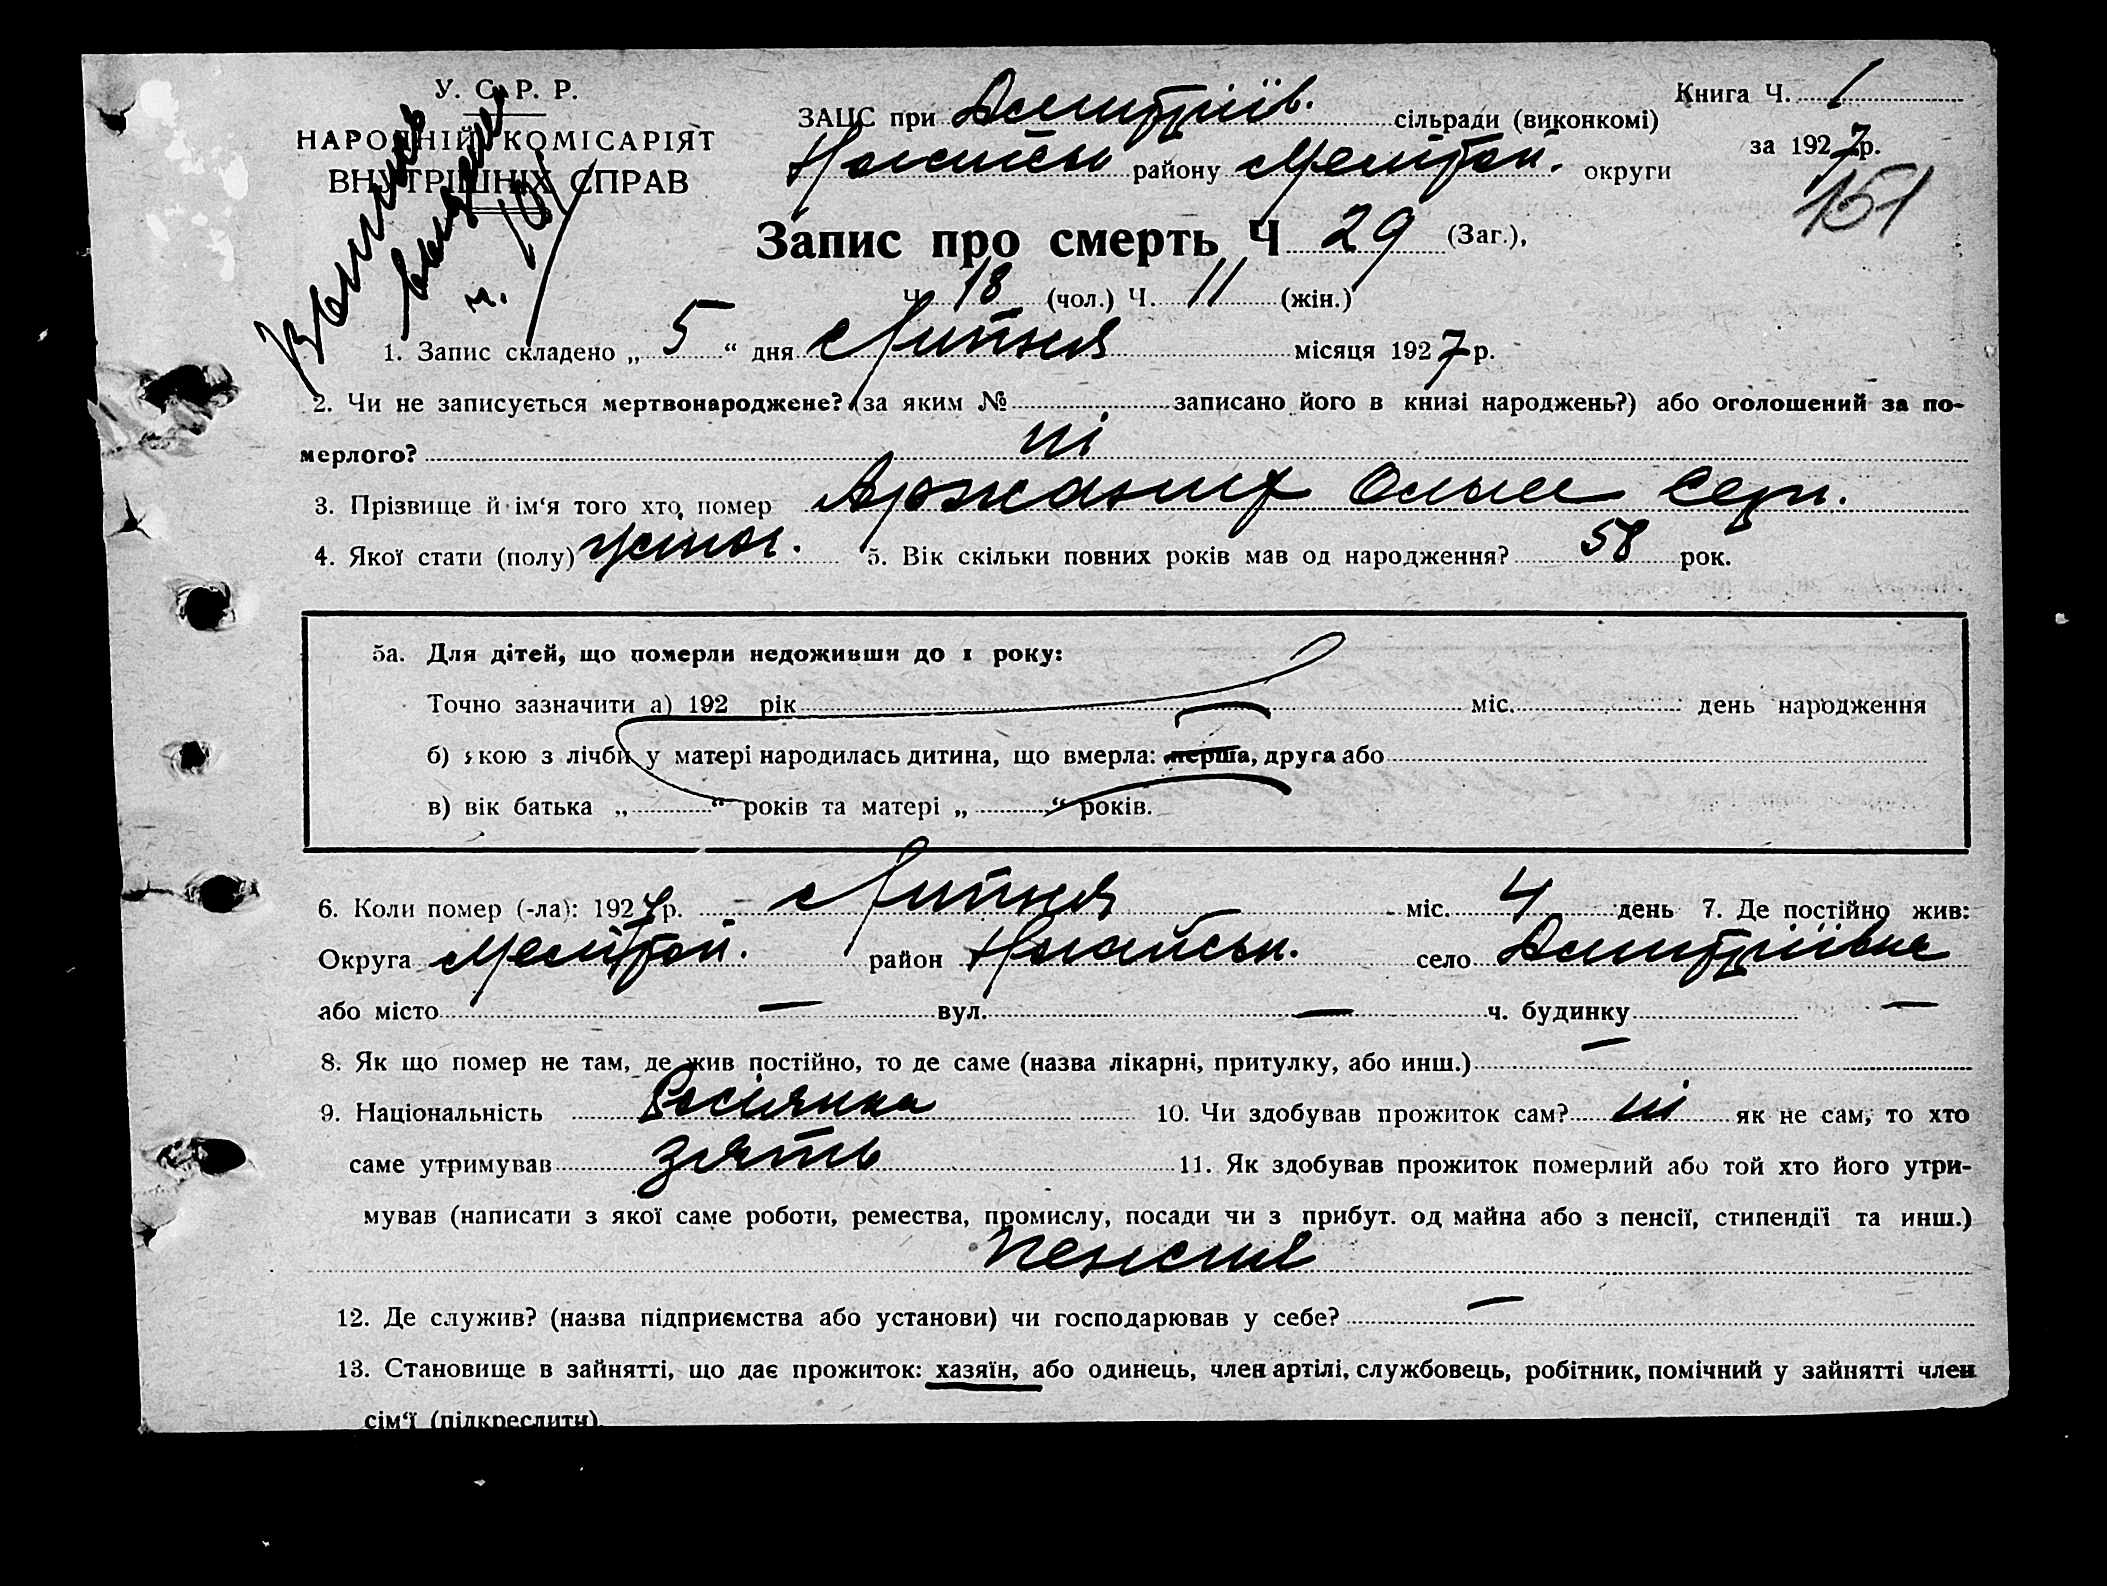 У. С. Р. Р.
НАРОДНІЙ КОМІСАРІЯТ
ВНУТРІШНІХ СПРАВ
Книга Ч. 1
ЗАЦС при Дмитріїв. сільради (виконкомі)
за 1927 р.
Ногайськ району Мелітоп. округи
151
Запис про смерть Ч 29 (Заг.),
Ч. 18 (чол.) Ч. 11 (жін.)
1. Запис складено „ 5 “ дня Липня місяця 1927 р.
2. Чи не записується мертвонароджене? (за яким № записано його в книзі народжень?) або оголошений за по-
мерлого? ні
3. Прізвище й ім‘я того хто помер Аржаних Ольга Серг.
4. Якої стати (полу) жіноч. 5. Вік скільки повних років мав од народження? 58 рок.
5а. Для дітей, що померли недоживши до 1 року:
Точно зазначити а) 192 рік міс. день народження
б) якою з лічби у матері народилась дитина, що вмерла: перша, друга або
в) вік батька „ “ років та матері „ “ років.
6. Коли помер (-ла): 1927 р. Липня міс. 4 день 7. Де постійно жив:
Округа Мелітоп. район Ногайськ. село Дмитріївка
або місто — вул. — ч. будинку —
8. Як що помер не там, де жив постійно, то де саме (назва лікарні, притулку, або инш.) —
9. Національність Росіянка 10. Чи здобував прожиток сам? ні як не сам, то хто
саме утримував зять 11. Як здобував прожиток померлий або той хто його утри-
мував (написати з якої саме роботи, ремества, промислу, посади чи з прибут. од майна або з пенсії, стипендії та инш.)
12. Де служив? (назва підприємства або установи) чи господарював у себе? —
13. Становище в зайнятті, що дає прожиток: хазяїн, або одинець, член артілі, службовець, робітник, помічний у зайнятті член
сім‘ї (підкреслити).